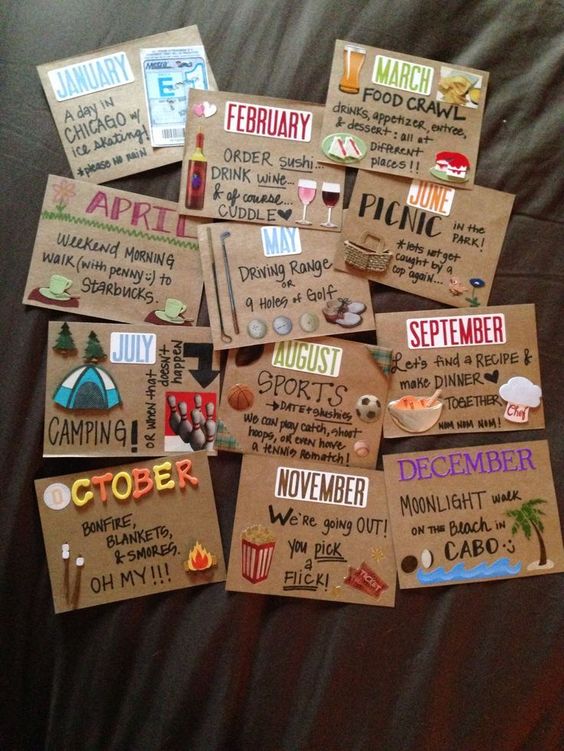 JANUARY
A day in
CHICAGO w/
ice skating!
*please no rain
METRA
E
FEBRUARY
ORDER sushi...
DRINK wine...
& of course...
CUDDLE
MARCH
FOOD CRAWL
drinks, appetizer, entree,
& dessert : all at
Different
places!!
APRIL
Weekend Morning
walk (with penny :) to
Starbucks.
MAY
DRIVING RANGE
OR
9 Holes of Golf
JUNE
PICNIC in the
PARK!
*lets not get
caught by a
cop again...
JULY
CAMPING!
OR when that doesn't
happen
AUGUST
SPORTS
→ DATE + slushies
We can play catch, shoot
hoops, or even have
a tennis Rematch!
SEPTEMBER
Let's find a RECIPE &
make DINNER
TOGETHER
NOM NOM NOM!
Chef
OCTOBER
BONFIRE,
BLANKETS,
& SMORES.
OH MY!!!
NOVEMBER
We're going OUT!
you pick
a
FLICK!
TICKET
DECEMBER
MOONLIGHT walk
ON the BEACH in
CABO :)